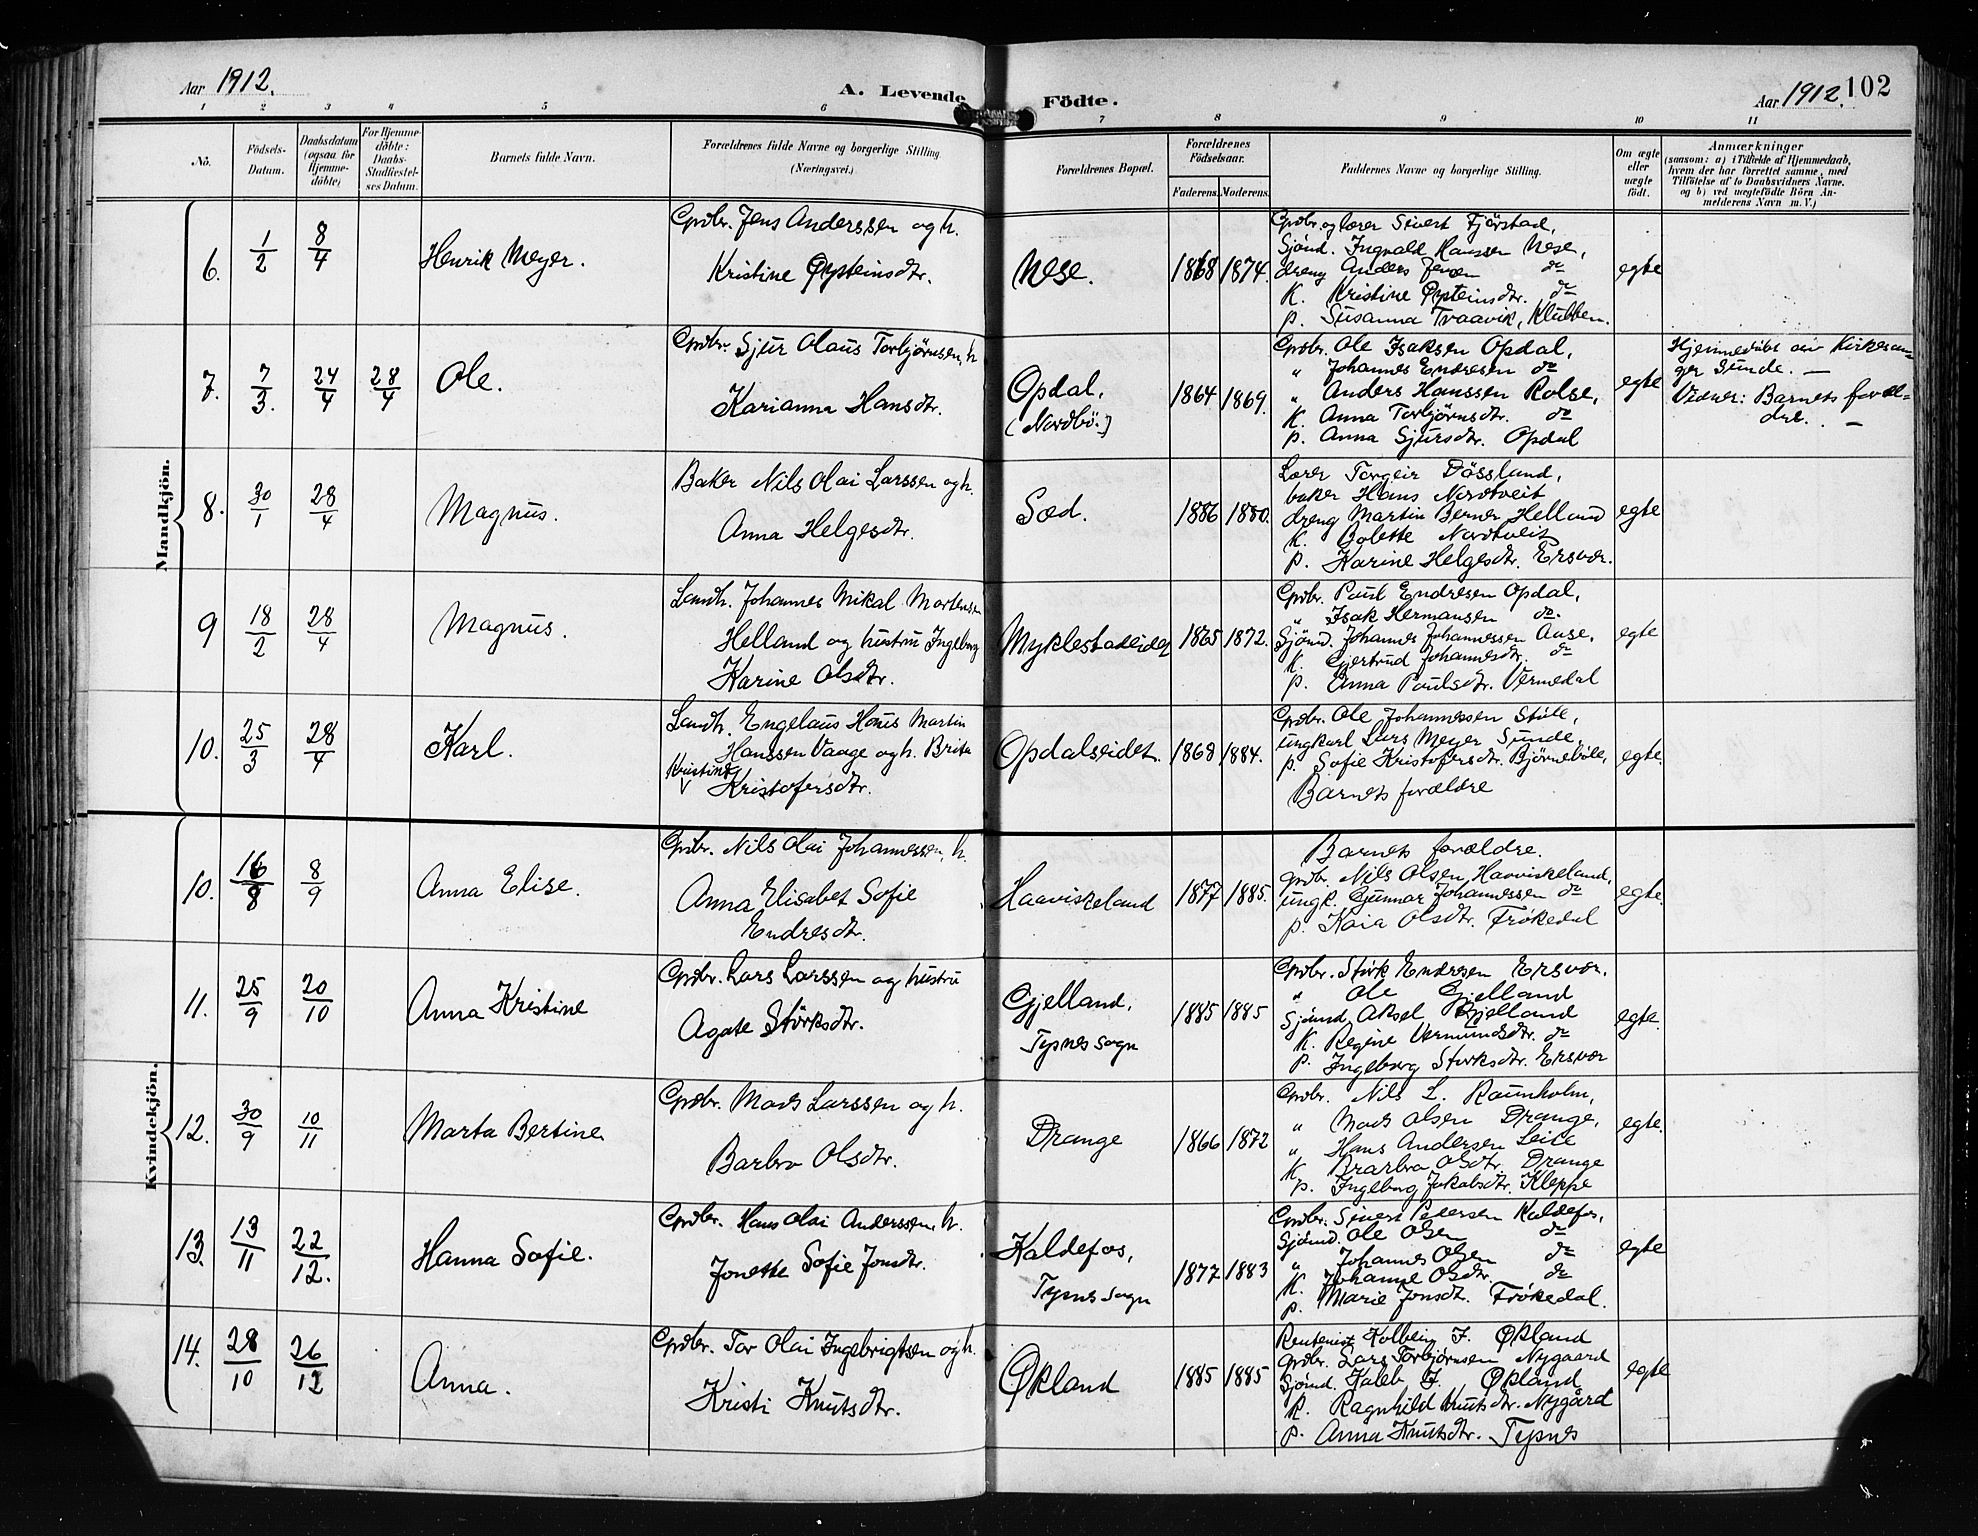 Aar 1912.
A. Levende Födte.
Aar 1912. 102
1 2 3 4 5 6 7 8 9 10 11
No.
Födsels-Datum.
Daabsdatum (ogsaa for Hjemme-döbte)
For Hjemme-döbte: Daabs-Stadfæstel-ses Datum.
Barnets fulde Navn.
Forældrenes fulde Navne og borgerlige Stilling (Næringsvei.)
Forældrenes Bopæl.
Forældrenes Födselsaar.
Faderens. Moderens.
Faddernes Navne og borgerlige Stilling.
Om ægte eller uægte födt.
Anmærkninger
(saasom: a) i Tilfælde af Hjemmedaab, hvem der har forrettet samme, med Tilföielse af to Daabsvidners Navne. og b) ved uægtefödte Börn Anmelderens Navn m. V.)
Mandkjön.
6. 1/2 8/4 Henrik Meyer.
Grdbr. Jens Anderssen og h.
Kristine Øysteinsdtr.
Nese. 1868 1874.
Grdbr. og lærer Sivert Fjörstad,
Sjömd. Ingvald Hanssen Nese,
dreng Anders Jensen do
K. Kristine Øysteinsdtr. do
p. Susanna Traavik, Klubben.
egte
7. 7/3. 24/4 28/4 Ole.
Grdbr. Sjur Olaus Torbjörnsen, h
Karianna Hansdtr.
Opdal.
(Nordbö.)
1864 1869.
Grdbr. Ole Isaksen Opdal,
" Johannes Endresen do
" Anders Hanssen Rolse,
K. Anna Torbjörnsdtr. do
p. Anna Sjursdtr. Opdal
egte
Hjemmedöbt av Kirkesan-
ger Sunde. —
Vidner: Barnets foræl-
dre. —
8. 30/1 28/4 Magnus.
Baker Nils Olai Larssen og h.
Anna Helgesdtr.
Sæd. 1886 1880.
Lærer Torgeir Døssland,
baker Hans Nordtveit
dreng Martin Berner Helland
K. Bolette Nordtveit
p. Karine Helgesdtr. Ersvær.
egte
9 18/2 28/4 Magnus.
Landh. Johannes Mikal Mortensen
Helland og hustru Ingeborg
Karine Olsdtr.
Myklestadeidet 1865 1872.
Grdbr. Paul Endresen Opdal,
" Isak Hermansen do.
Sjömd. Johannes Johannessen Aase,
K. Gjertrud Johannesdtr. do
p. Anna Paulsdtr. Vermedal
egte
10. 25/3 28/4 Karl.
Landh. Engelaus Hans Martin
Hanssen Vaage og h. Brita
Kristine
Kristofersdtr.
Opdalseidet. 1868 1884.
Grdbr. Ole Johannessen Stöle,
ungkarl Lars Meyer Sunde,
p. Sofie Kristofersdtr. Björneböle,
Barnets forældre
egte.
Kvindekjön.
10. 16/8 8/9 Anna Elise.
Grdbr. Nils Olai Johannessen, h.
Anna Elisabet Sofie
Endresdtr.
Haaviskeland 1877 1885.
Barnets forældre.
grdb. Nils Olsen, Haaviskeland,
ungk. Gunnar Johannessen do
p. Kaia Olsdtr. Frökedal
egte.
11. 25/9 20/10 Anna Kristine
Grdbr. Lars Larssen og hustru
Agate Störksdtr.
Gjelland,
Tysnes sogn
1885 1885
Grdbr. Störk Endresen Ersvær.
" Ole Gjelland
Sjömd. Aksel Gjelland
K. Regine Vermundsdtr. do
p. Ingeborg Störksdtr. Ersvær
egte.
12. 30/9 10/11 Marta Bertine
Grdbr. Mads Larssen og h.
Barbra Olsdtr.
Drange 1866 1872
Grdbr. Nils L. Raunholm,
" Mads Olsen Drange,
" Hans Andersen Leite
K. Brarbra Olsdtr. Drange
p. Ingeborg Jakobsdtr. Kleppe
egte.
13. 13/11 22/12. Hanna Sofie.
Grdbr. Hans Olai Anderssen, h.
Jonette Sofie Jonsdtr.
Kaldefos,
Tysnes sogn
1877 1883
Grdbr. Sivert Pedersen Kaldefos,
Sjömd. Ole Olsen do
" Johannes Olsen do
K. Johanne Olsdtr. do
p. Marie Jonsdtr. Frökedal.
egte
14. 28/10 26/12 Anna.
Grdbr. Tor Olai Ingebrigtsen og h.
Kristi Knutsdtr.
Økland 1885 1885
Rentenist Kolbein J. Økland
grdbr. Lars Torbjörnsen Nygaard
Sjömd. Jakob J. Økland
K. Ragnhild Knutsdtr. Nygård
p. Anna Knutsdtr. Tysnes
egte